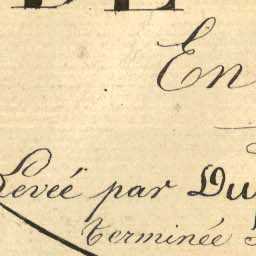 DE
En
Levée par Du
terminée